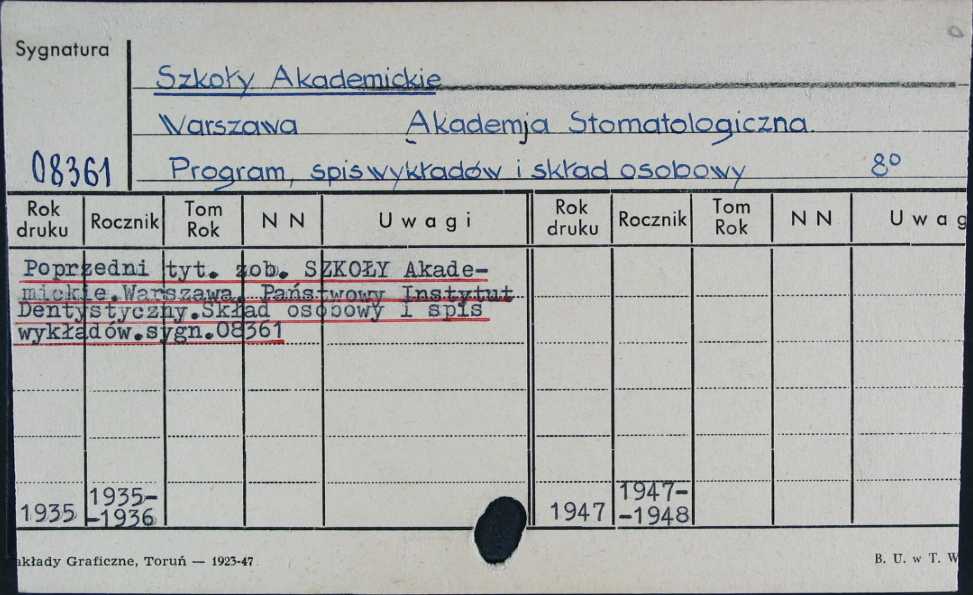 Sygnatura
Szkoły Akademickie
Warszawa Akademja Stomatologiczna.
08361 Program, spis wykładów i skład osobowy 8º
Rok druku Rocznik Tom Rok N N Uwagi Rok druku Rocznik Tom Rok N N Uwag
Poprzedni tyt. zob. SZKOŁY Akade-
mickie.Warszawa. Państwowy Instytut
Dentystyczny.Skład osobowy i spis
wykładów.sygn.08361
1935 1935-
-1936 1947 1947-
-1948
akłady Graficzne, Toruń — 1923-47 B. U. w T. W